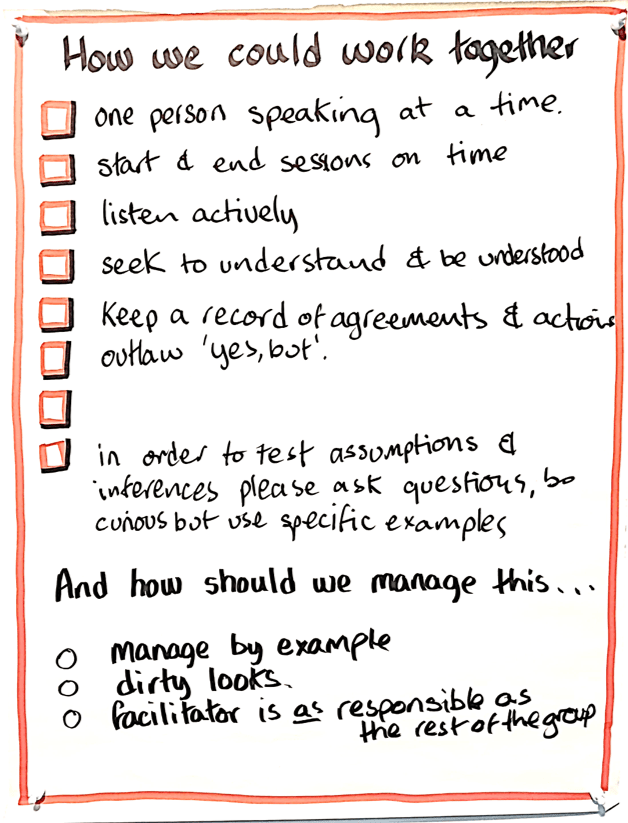 How we could work together
one person speaking at a time.
start & end sessions on time
listen actively
seek to understand & be understood
Keep a record of agreements & actions
outlaw 'yes, but'.
in order to test assumptions &
inferences please ask questions, be
curious but use specific examples
And how should we manage this...
manage by example
dirty looks.
facilitator is as responsible as
the rest of the group